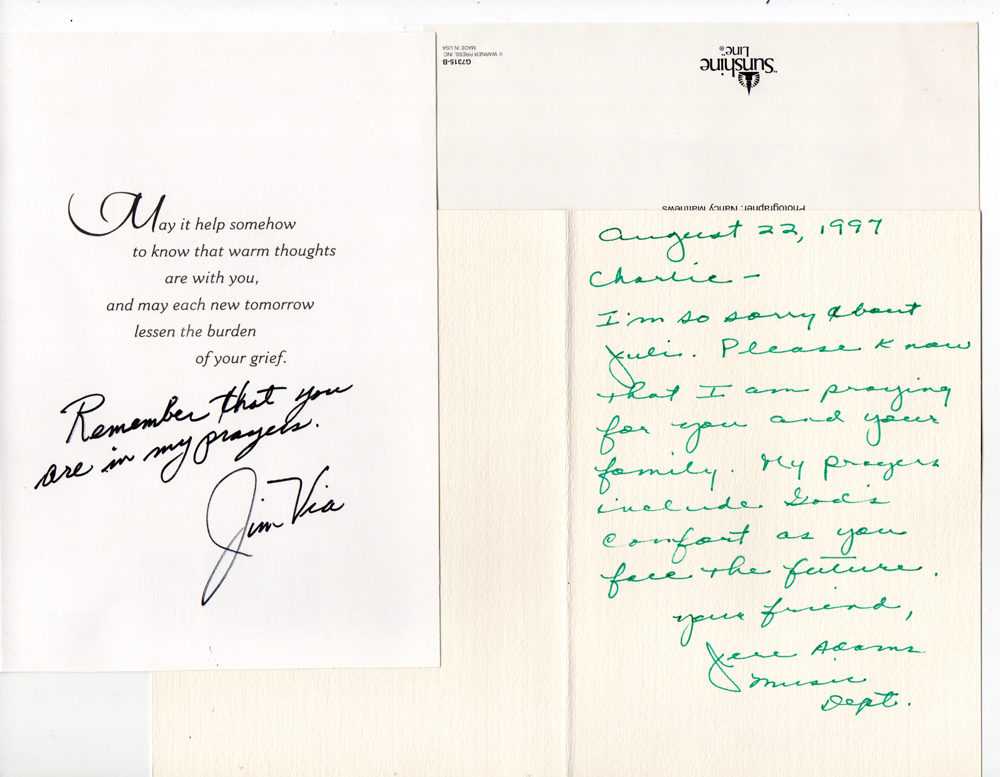 May it help somehow
to know that warm thoughts
are with you,
and may each new tomorrow
lessen the burden
of your grief.
Remember that you
are in my prayers.
Jim Via
"Sunshine
Line"®
G7315-B
© WARNER PRESS, INC.
MADE IN USA
Photographer: Nancy Matthews
August 22, 1997
Charlie –
I'm so sorry about
Juli. Please know
that I am praying
for you and your
family. My prayers
include God's
comfort as you
face the future.
Your friend,
Jere Adams
Music
Dept.